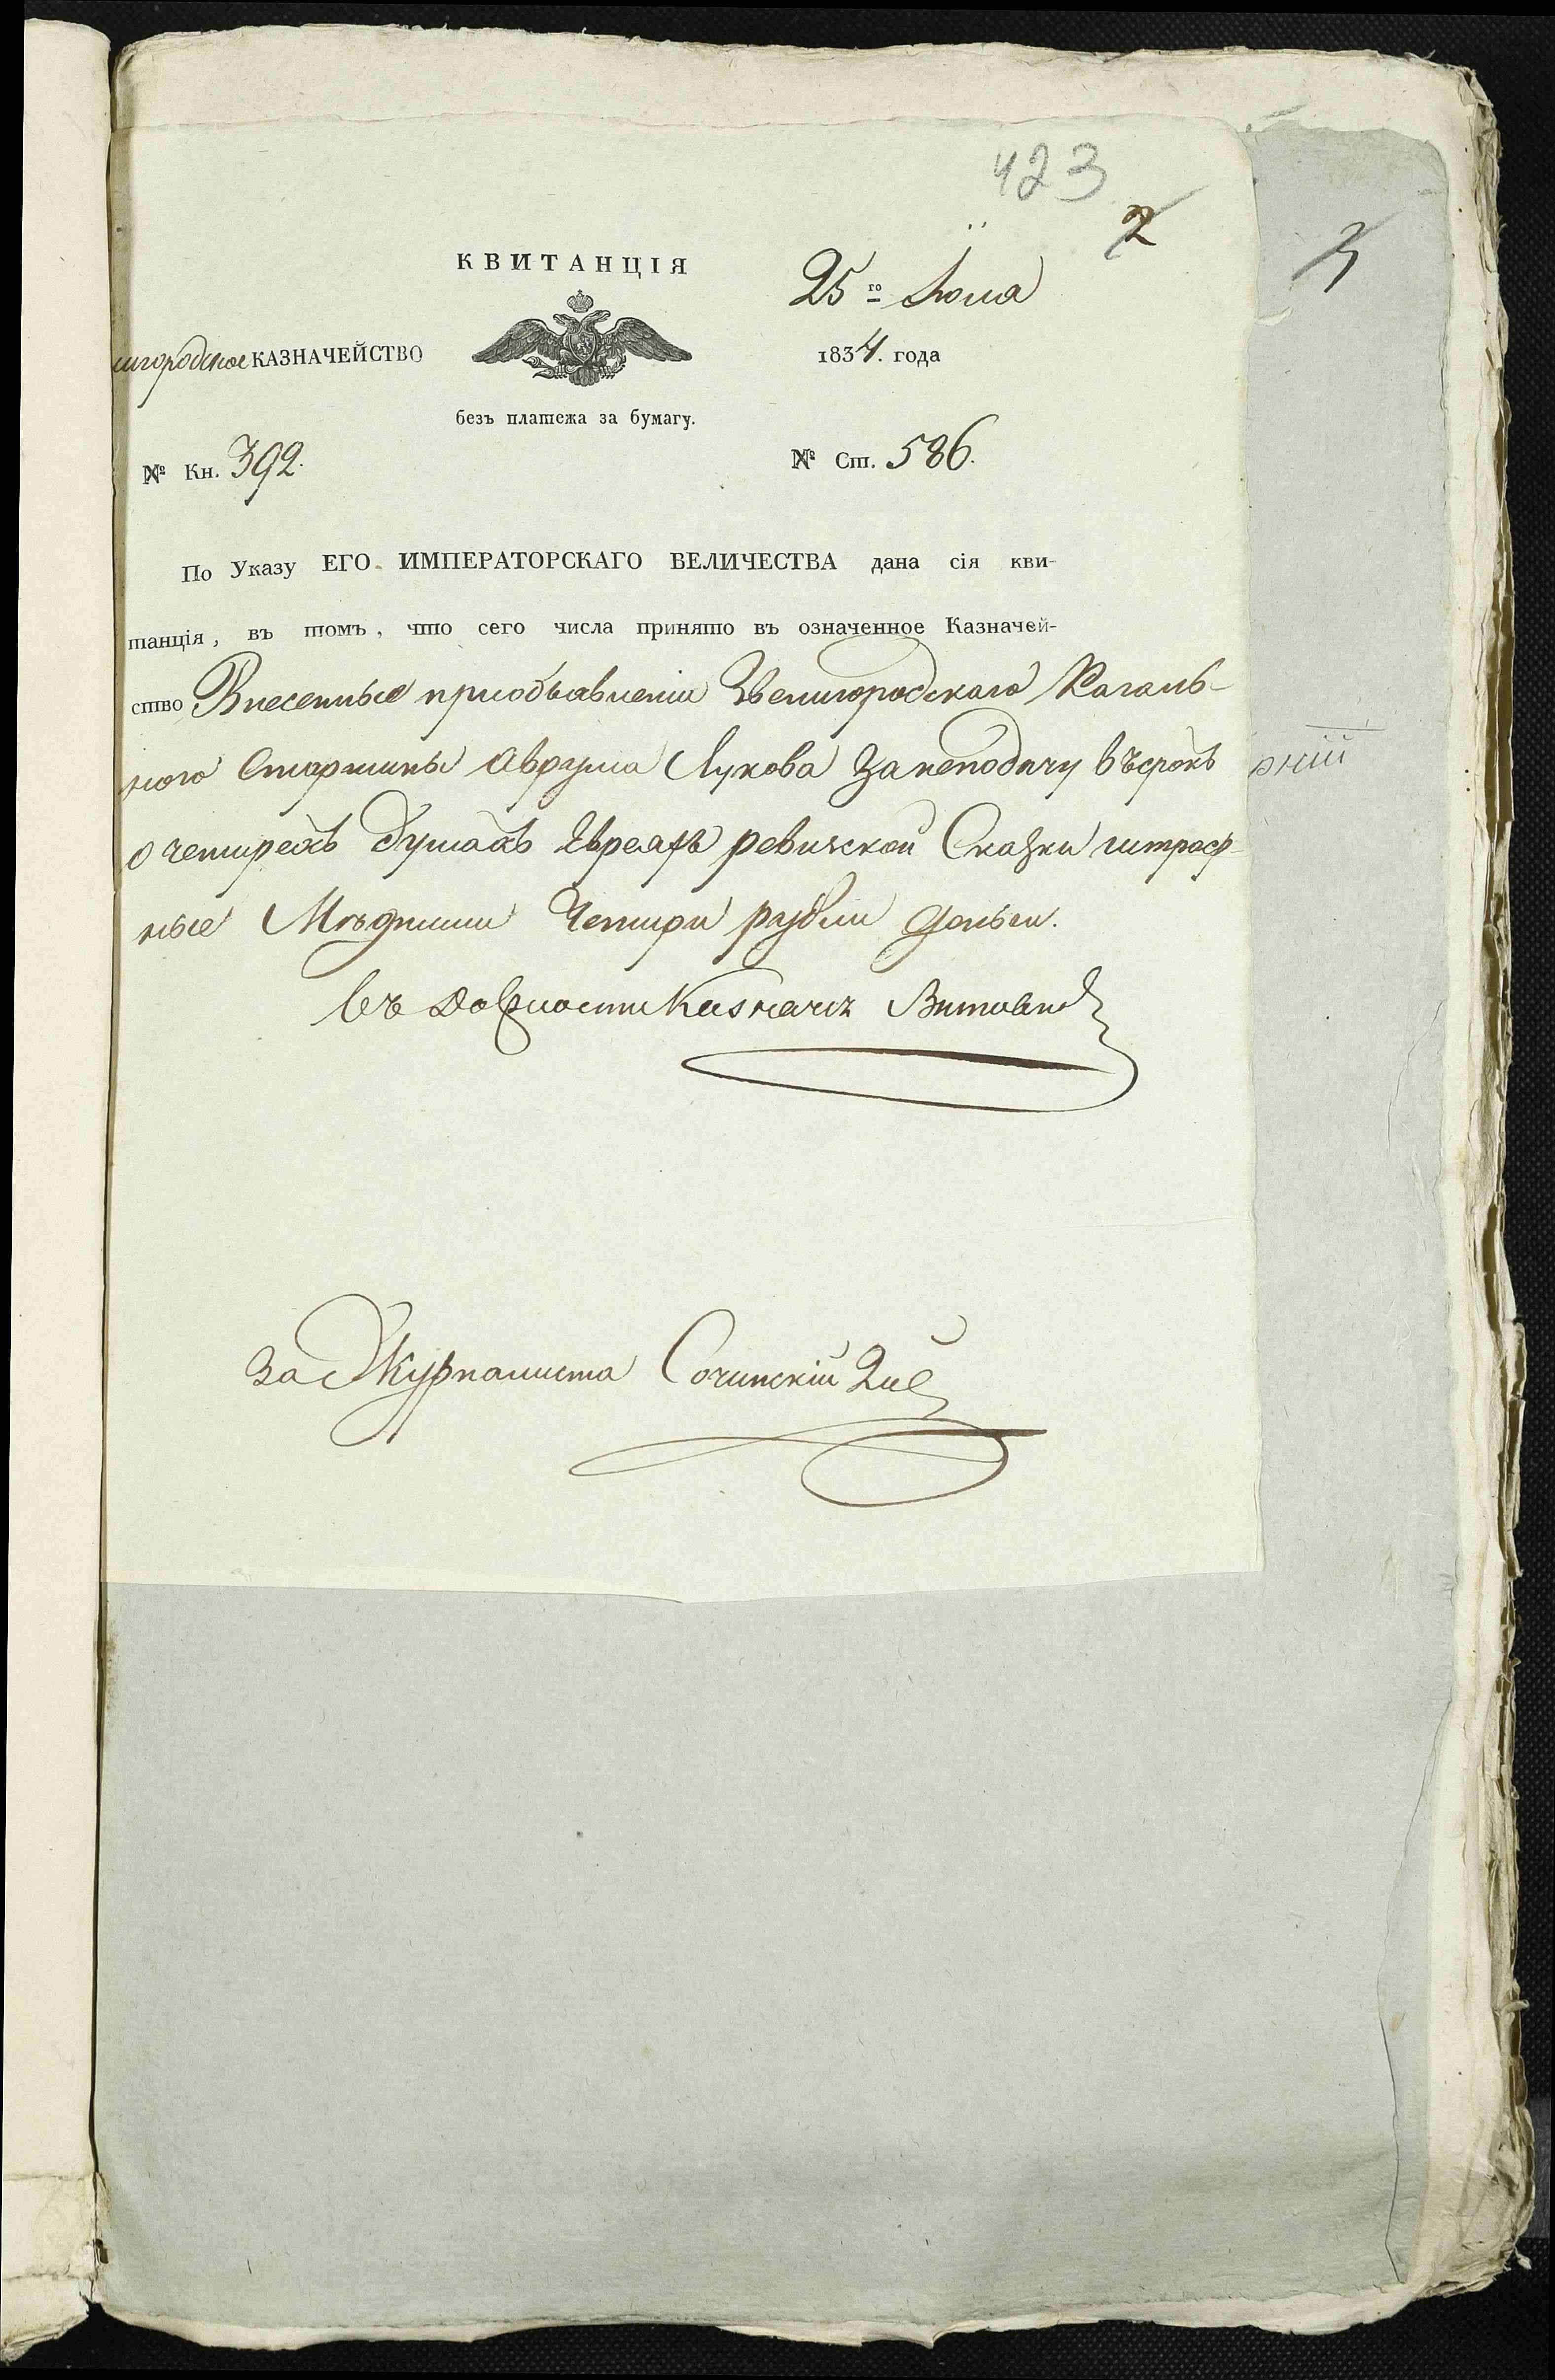 423
2
3
КВИТАНЦІЯ
25го Іюля
игородское КАЗНАЧЕЙСТВО
1834. года
безъ платежа за бумагу.
№ Кн. 392.
№ Ст. 586.
По Указу ЕГО ИМПЕРАТОРСКАГО ВЕЛИЧЕСТВА дана сія кви-
танція, въ томъ, что сего числа принято въ означенное Казначей-
ство Внесенные приобъявленіи Звенигородскаго Кагаль-
ного Старшины Аврума Лукова Занеподачу въсрокъ
о четирехъ душахъ Евреяхъ ревизской Сказки штраф-
ные Мѣдними Четири рубли
въ Казначея
за Журналиста Сочинскій